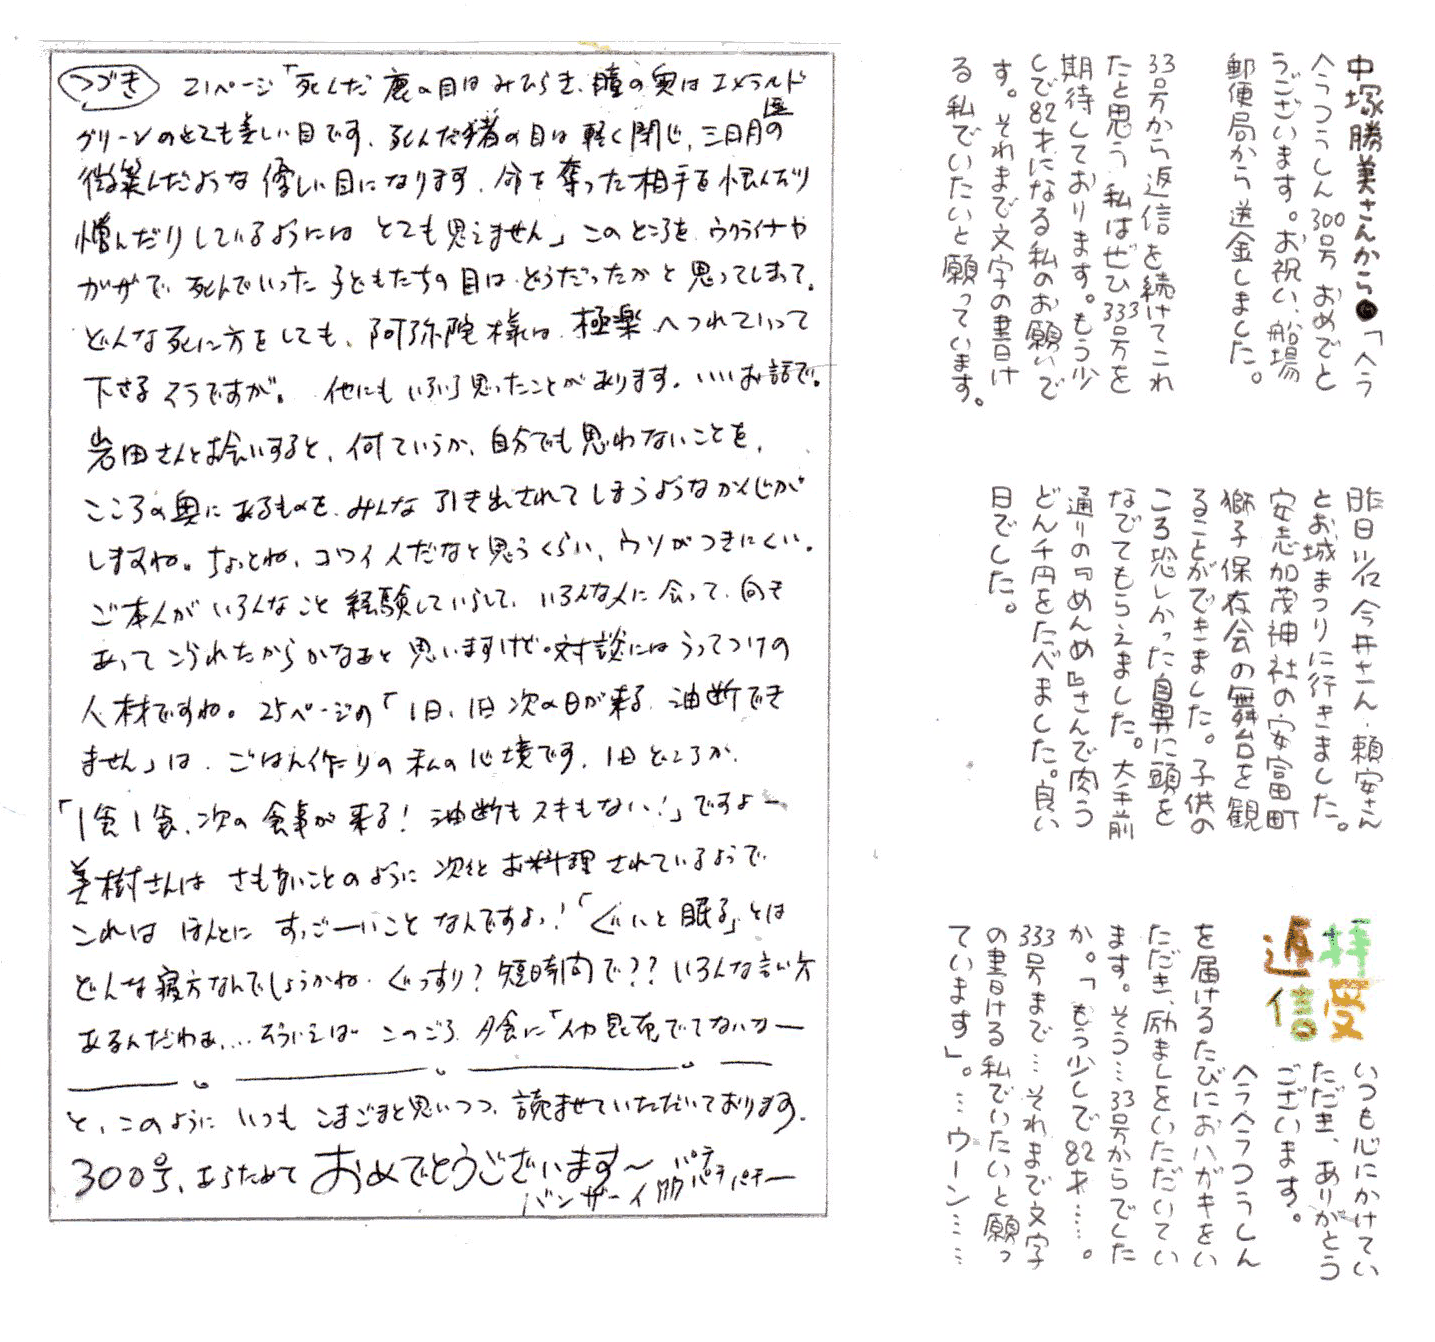 中塚勝美さんから●「ヘラ
ヘラつうしん300号おめでと
うございます。お祝い、船場
郵便局から送金しました。
33号から返信を続けてこれ
たと思う私はぜひ333号を
期待しております。もう少
しで82才になる私のお願いで
す。それまで文字の書け
る私でいたいと願っています。
昨日5/12今井さん、頼安さん
とお城まつりに行きました。
安志加茂神社の安富町
獅子保存会の舞台を観
ることができました。子供の
ころ恐しかった自鼻に頭を
なでてもらえました。大手前
通りの『めんめ』さんで肉う
どん千円をたべました。良い
日でした。
拝受
返信
いつも心にかけてい
ただき、ありがとう
ございます。
ヘラヘラつうしん
を届けるたびにおハガキをい
ただき、励ましをいただいてい
ます。そう…33号からでした
か。「もう少しで82才……。
333号まで…それまで文字
の書ける私でいたいと願っ
ています」。…ウーン……
つづき 21ページ「死んだ鹿の目はみひらき、瞳の奥はエメラルド
グリーンのとても美しい目です。死んだ猪の目は軽く閉じ、三日月の
微笑んだような優しい目になります。命を奪った相手を恨んだり
憎んだりしているようには とても思えません」このところを、ウクライナや
ガザで死んでいった子どもたちの目は、どうだったかと思ってしまって。
どんな死に方をしても、阿弥陀様は、極楽へつれていって
下さるそうですが。 他にもいろいろ思ったことがあります。いいお話で。
岩田さんとお会いすると、何ていうか、自分でも思わないことを、
こころの奥にあるものを、みんな引き出されてしまうようなかんじが
しますね。ちょっとね、コワイ人だなと思うくらい、ウソがつきにくい。
ご本人がいろんなこと経験していらして、いろんな人に会って、向き
あってこられたからかなあと思いますけど。対談にはうってつけの
人材ですね。25ページの「1日、1日次の日が来る 油断でき
ません」は、ごはん作りの私の心境です。1日どころか、
「1食1食、次の食事が来る！油断もスキもない！」ですよー
美樹さんは さもないことのように 次々とお料理されているようで
これは ほんとに すっごーいことなんですよっ！「ぐいと眠る」とは
どんな寝方なんでしょうかね。ぐっすり？短時間で？？いろんな言い方
あるんだわぁ…。そういえば このごろ、夕食に「 でてないなー
と、このように いつも こまごまと思いつつ、読ませていただいております。
300号、あらためて おめでとうございます～ パチパチパチー
バンザーイ